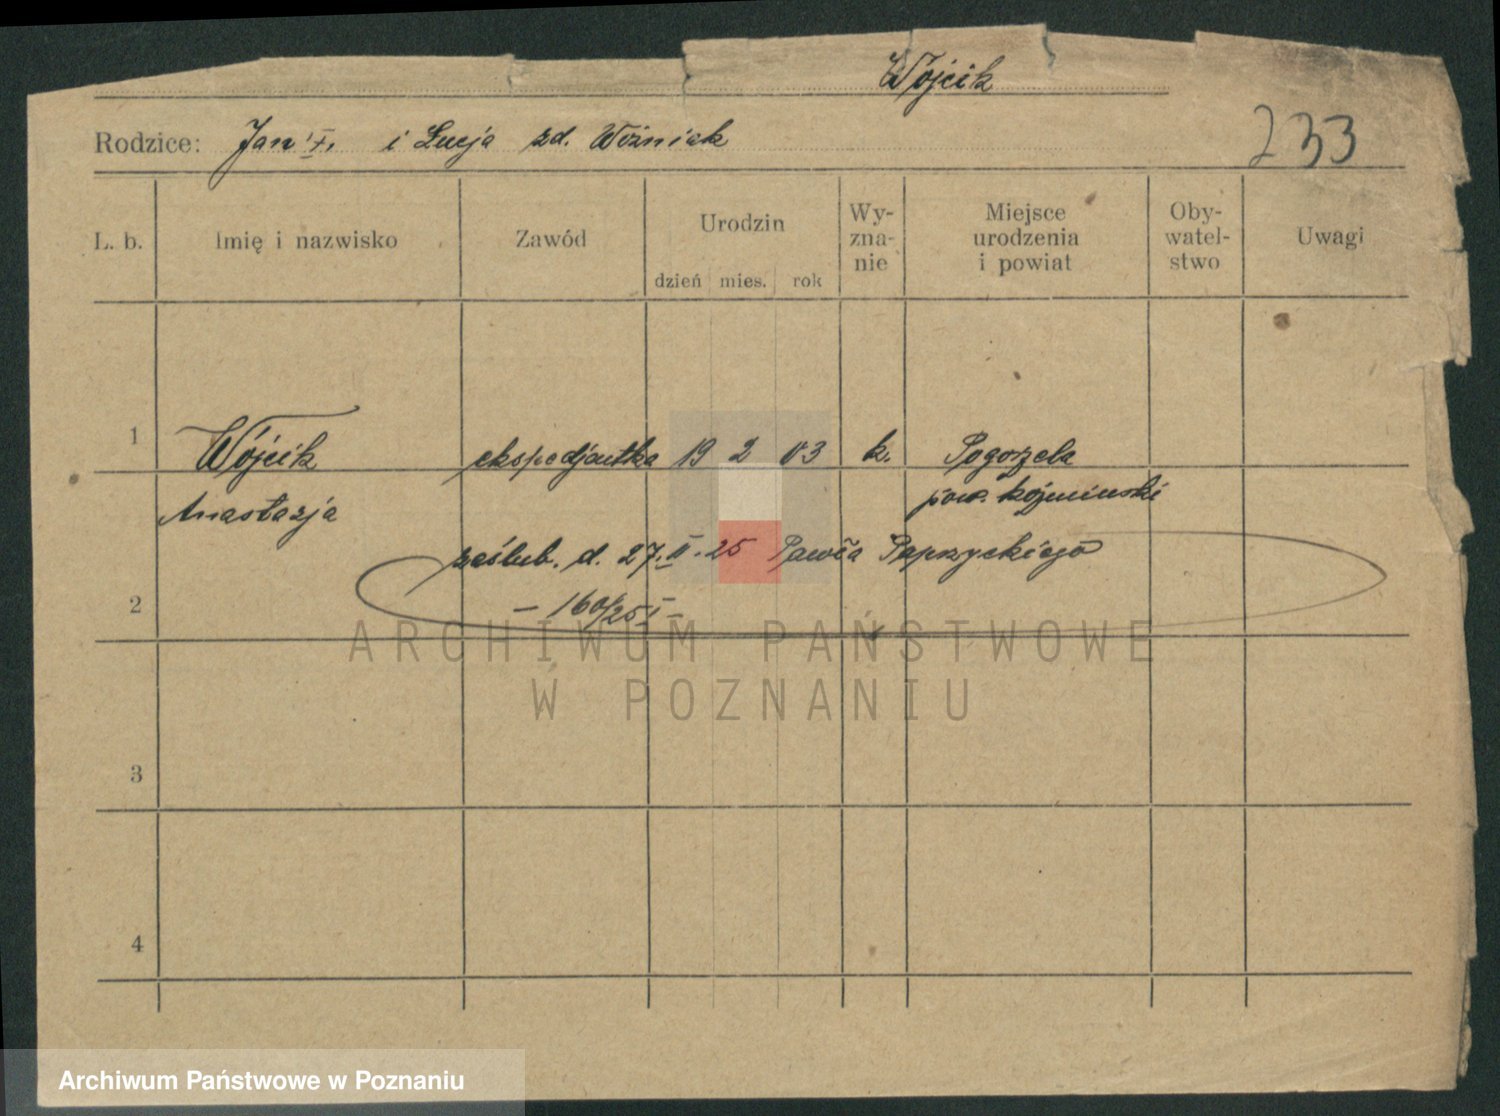 Wójcik
Rodzice: Jan i Lucja zd. Woźniak
233
L. b. Imię i nazwisko Zawód Urodzin dzień mies. rok Wy-zna-nie Miejsce urodzenia i powiat Oby-watel-stwo Uwagi
1 Wójcik ekspedjentka 19 2 03 k. Pogorzela
Anastazja pow. koźmiński
zaślub. d. 27. II. 25 Pawła Paprzyckiego
2 – 160/25 I –
3
4
ARCHIWUM PAŃSTWOWE
W POZNANIU
Archiwum Państwowe w Poznaniu